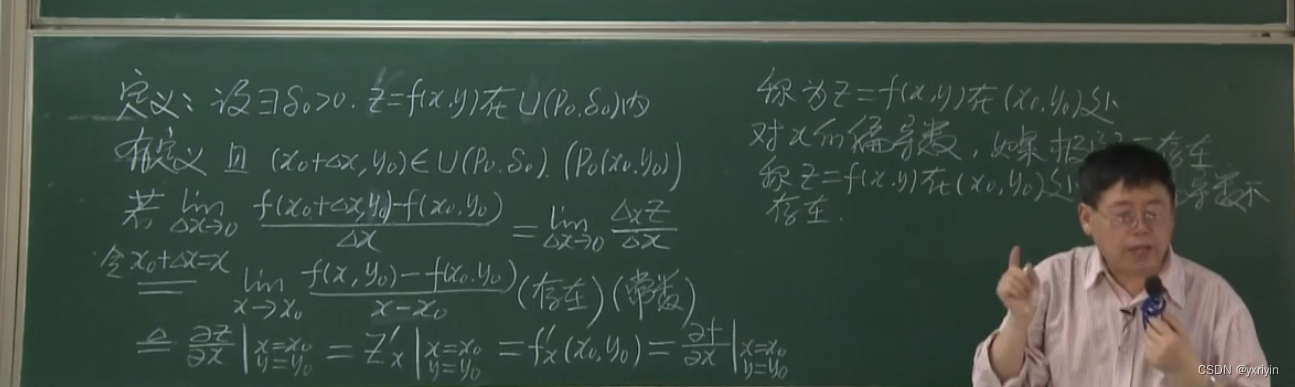 定义：设∃δ₀>0. z=f(x,y)在U(P₀,δ₀)内
有定义 且 (x₀+Δx,y₀)∈U(P₀,δ₀). (P₀(x₀,y₀))
若 lim_{Δx→0} (f(x₀+Δx,y₀)-f(x₀,y₀))/Δx = lim_{Δx→0} Δₓz/Δx
令x₀+Δx=x == lim_{x→x₀} (f(x,y₀)-f(x₀,y₀))/(x-x₀) (存在)(常数)
≜ ∂z/∂x|_{x=x₀ y=y₀} = z'ₓ|_{x=x₀ y=y₀} = f'ₓ(x₀,y₀) = ∂f/∂x|_{x=x₀ y=y₀}
称为z=f(x,y)在(x₀,y₀)处
对x的偏导数，如果极限不存在
称z=f(x,y)在(x₀,y₀)处 导数不
存在.
CSDN @yxriyin